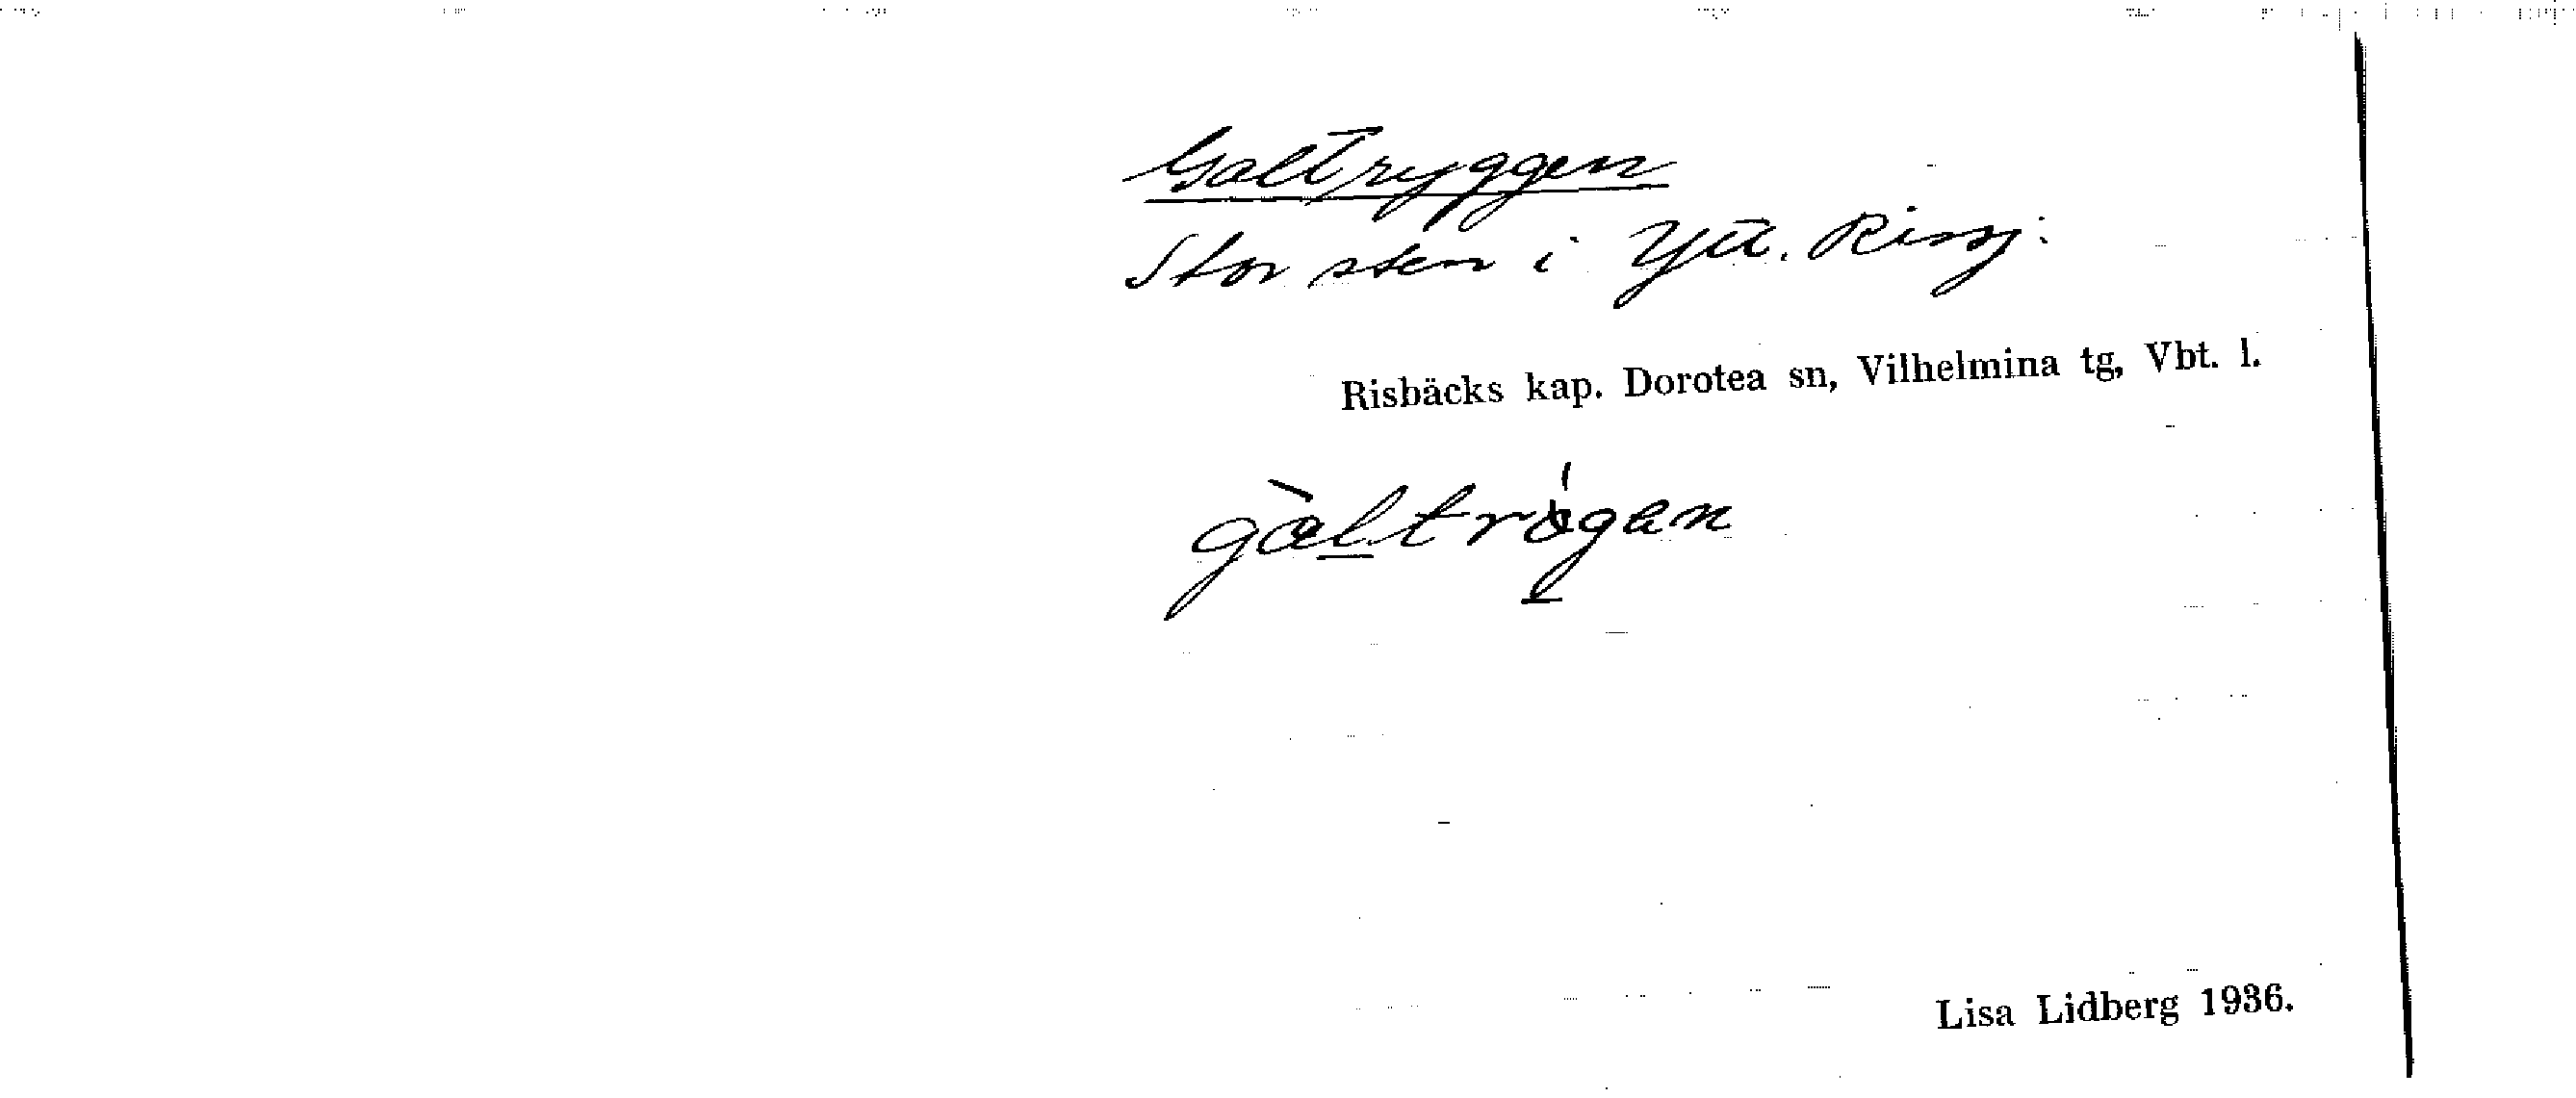 Galtryggen
Stor sten i Ytt. Rissj.
Risbäcks kap. Dorotea sn, Vilhelmina tg, Vbt. l.
gàltrògan
Lisa Lidberg 1936.